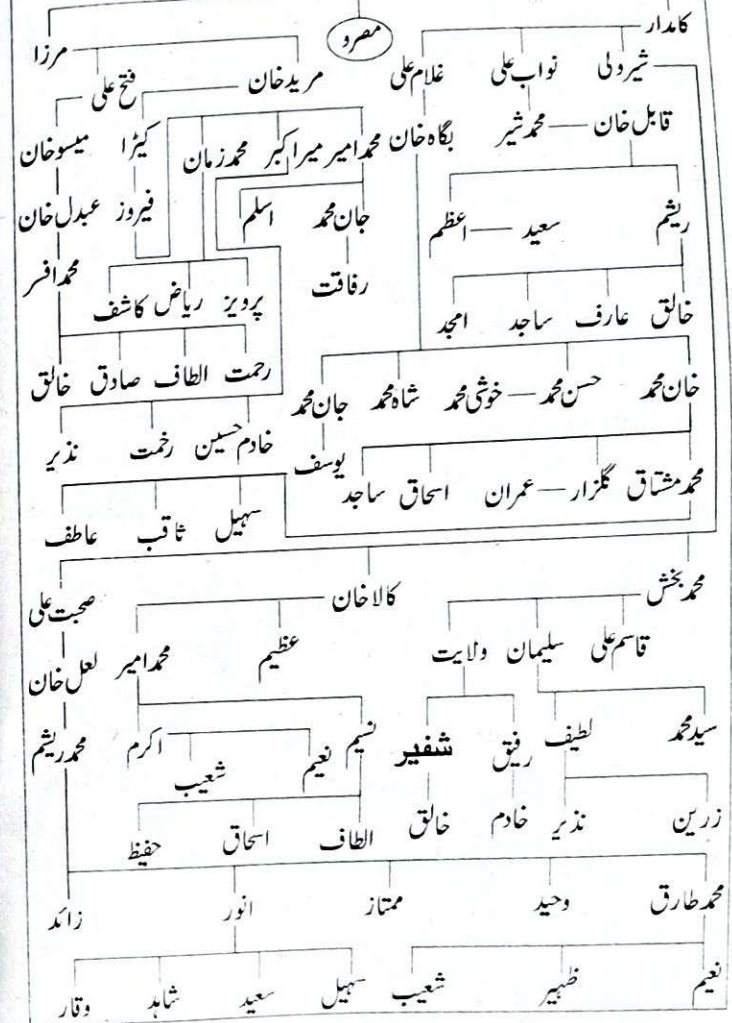 کامدار مصرو مرزا
شیرولی نواب علی غلام علی مرید خان فتح علی
قابل خان محمد شیر بگاہ خان محمد امیر میرا کبر محمد زمان کیڑا میسو خان
ریشم سعید اعظم جان محمد اسلم فیروز عبدل خان
رفاقت پرویز ریاض کاشف محمد افسر
خالق عارف ساجد امجد
رحمت الطاف صادق خالق
خان محمد حسن محمد خوشی محمد شاہ محمد جان محمد
خادم حسین رخمت نذیر
محمد مشتاق گلزار عمران اسحاق ساجد یوسف
سہیل ثاقب عاطف
محمد بخش کالا خان صحبت علی
قاسم علی سلیمان ولایت عظیم محمد امیر لعل خان
سید محمد لطیف رفیق شفیر نسیم نعیم شعیب اکرم محمد ریشم
زرین نذیر خادم خالق الطاف اسحاق حفیظ
محمد طارق وحید ممتاز انور زائد
نعیم ظہیر شعیب سہیل سعید شاہد وقار